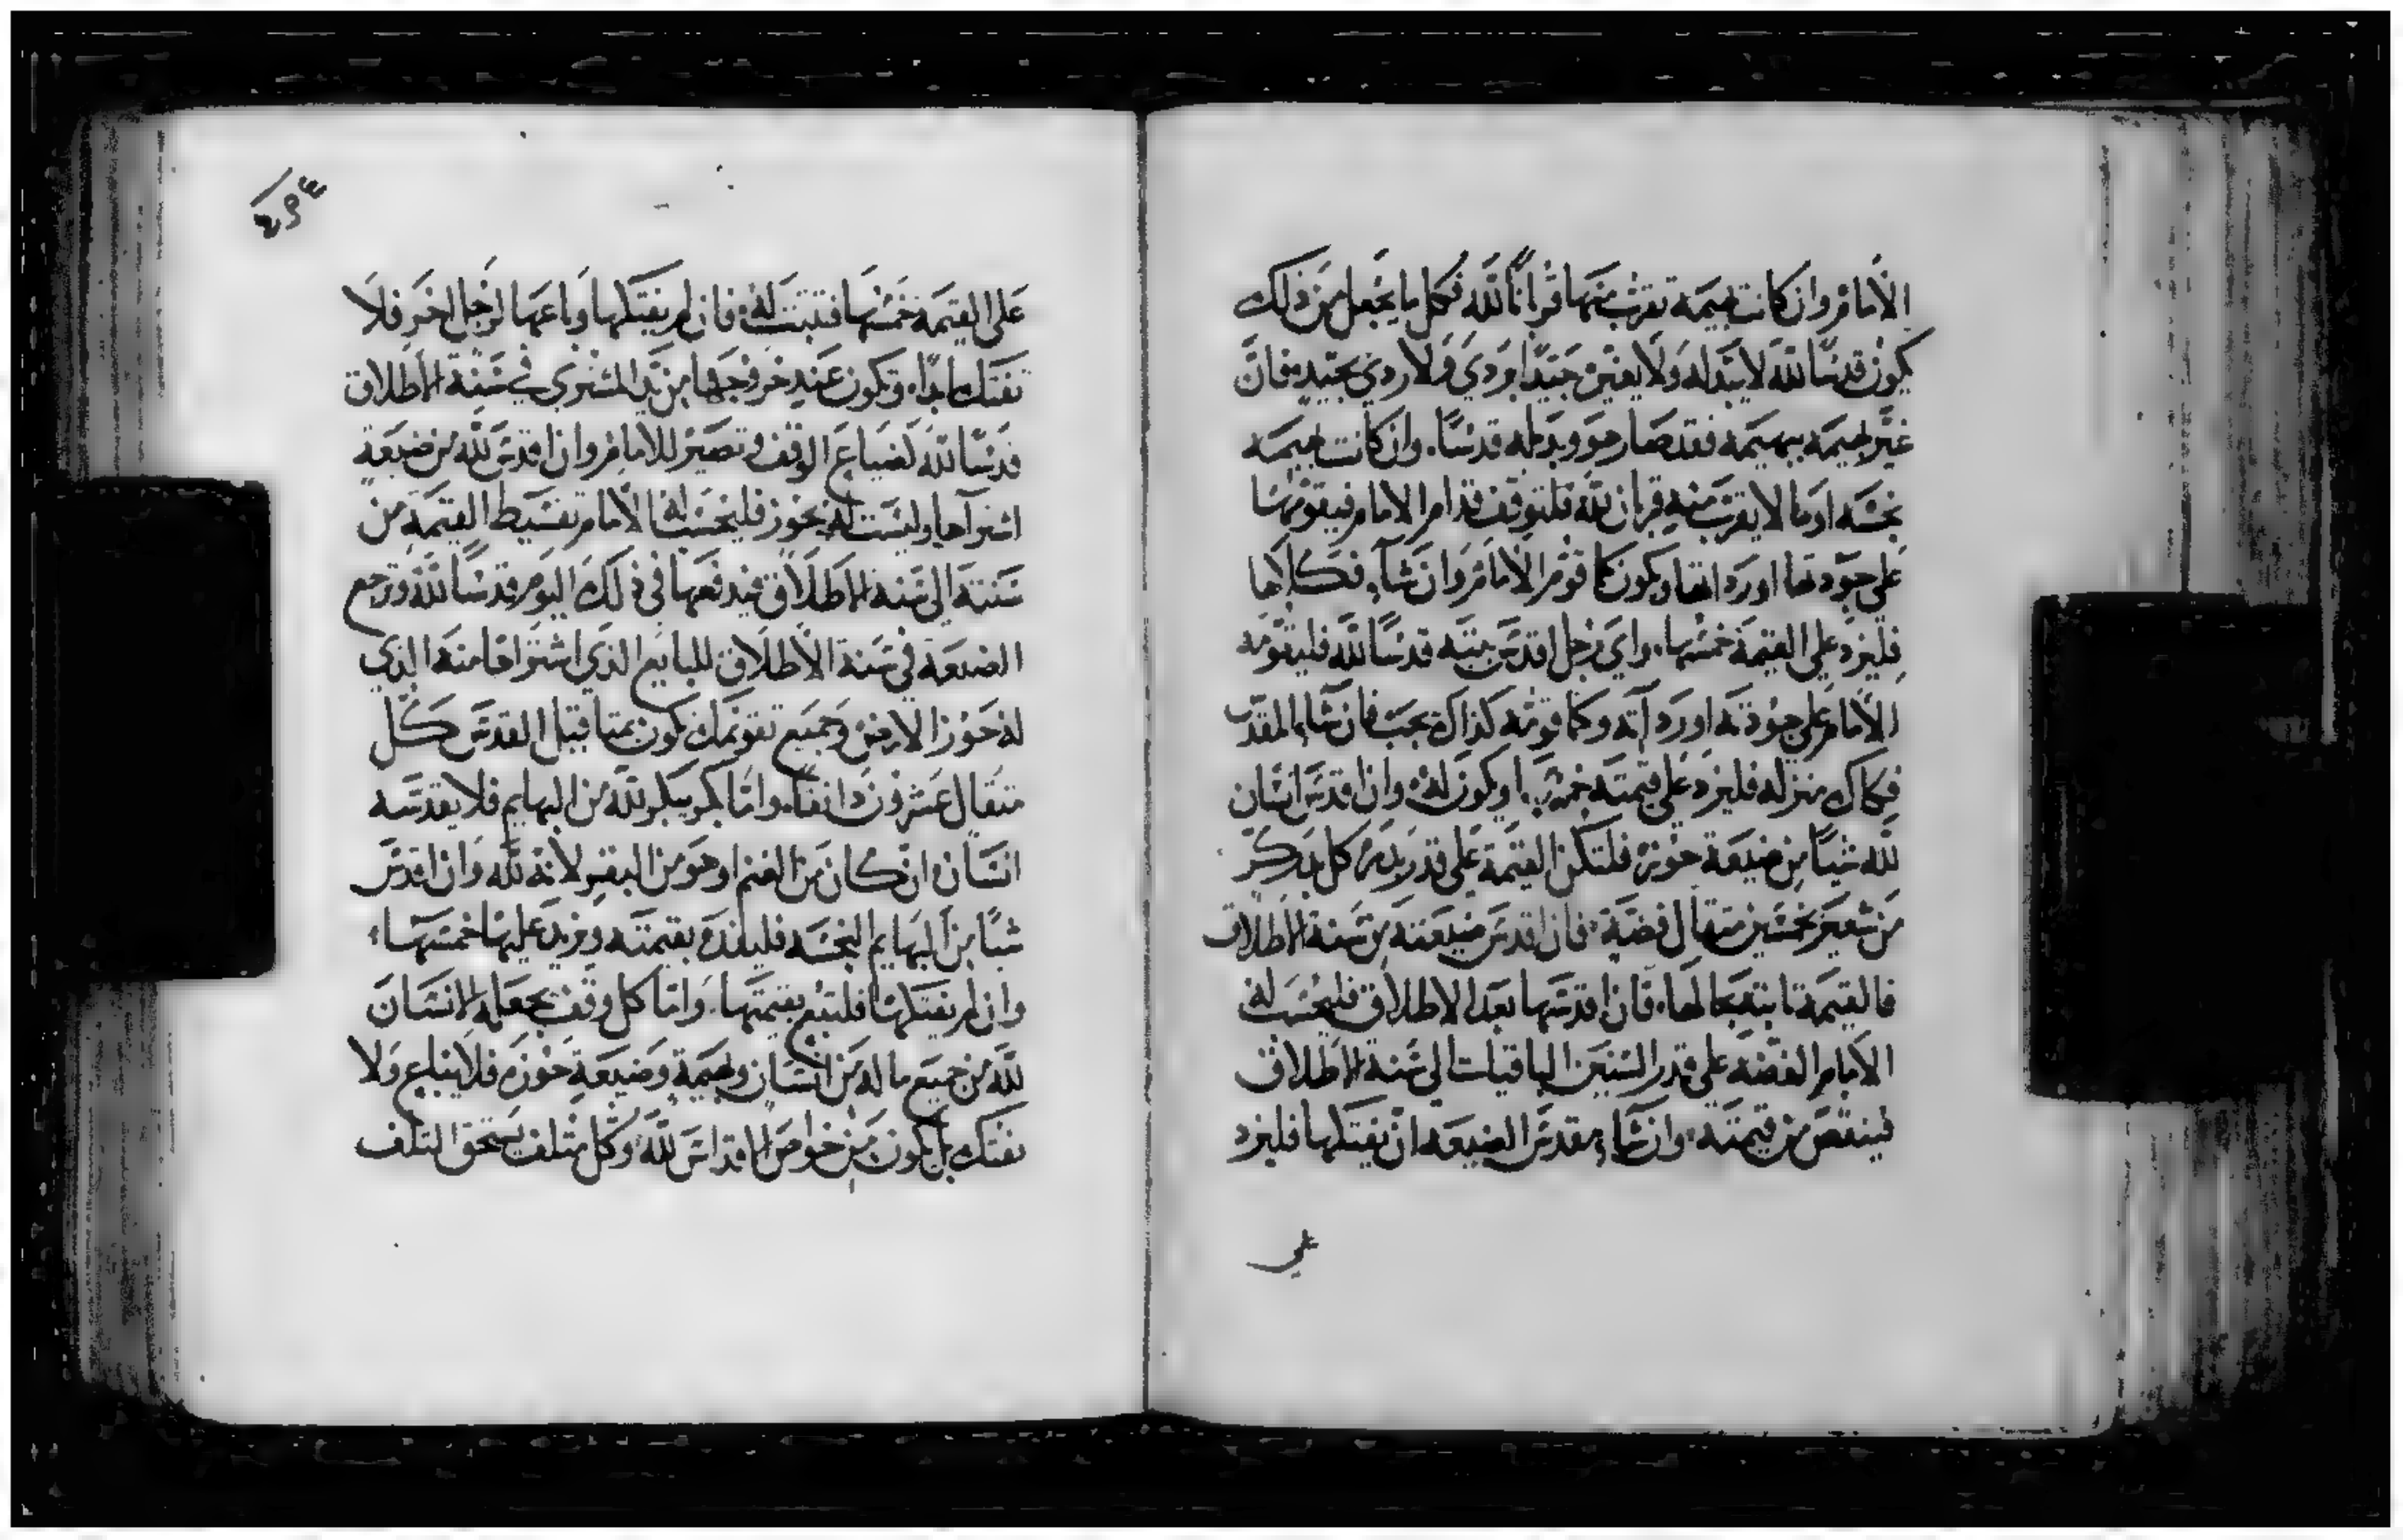 الأمام وان كانت بهيمة تقرب منها قربانًا لله فكل ما يجعل من ذلك
يكون قدسًا لله لا يبدله ولا يغيره جيدًا بردي ولا ردي بجيد فان
غيّر بهيمه ببهيمه فقد صار هو وبدله قدسًا. وان كانت بهيمه
نجسه او ما لا يقرب منه قربان لله فلتوقف قدام الامام فيقومها
على جودتها او رداتها ويكون كما قوم الأمام وان شاء فكاكها
فليزد على القيمة خمسها. واي رجل اقدس بيته قدسًا لله فليقومه
الأمام على جودته او رداته وكما قومه كذاك يجب فان شاء المقدس
فكاك منزله فليزد على قيمته خمسها ويكون له وان اقدس انسان
لله شيًا من ضيعة حوزه فلتكن القيمة على قدر بذره كل بذر كر
من شعير بخمسين مثقال فضة. فان اقدس ضيعته من سنة الأطلاق
فالقيمة ثابته بحالها. فان اقدسها بعد الاطلاق فليحسب له
الأمام الفضه على قدر السنين الباقيات الى سنة الأطلاق
فينقص من قيمته. وان شاء مقدس الضيعه ان يفتكها فليزد
على
على القيمة خمسها فتثبت له. فان لم يفتكها وباعها لرجل اخر فلا
تفتك ابدًا. وتكون عند خروجها من يد المشتري في سنة الأطلاق
قدسًا لله كضياع الوقف وتصير للامام وان اقدس لله من ضيعة
اشتراها وليست له بحوز فليحسب له الأمام تقسيط القيمة من
سنته الى سنة الأطلاق فيدفعها في ذلك اليوم قدسًا لله وترجع
الضيعة في سنة الأطلاق للبايع الذي اشتراها منه الذي
له حوز الارض وجميع تقويمك يكون بمثاقيل القدس كل
مثقال عشرون دانقًا. وامّا بكر يبكر لله من البهايم فلا يقدسه
انسان ان كان من الغنم او هو من البقر لأنه لله وان اقدس
شيًا من البهايم النجسه فليفده بقيمته ويزيد عليها خمسها
وان لم يفتكها فلتبع بقيمتها. وامّا كل وقف يجعله الانسان
لله من جميع ما له من انسان وبهيمة وضيعة حوزه فلا يباع ولا
يفتك بل يكون من خواص الاقداس لله وكل متلف يستحق التلف